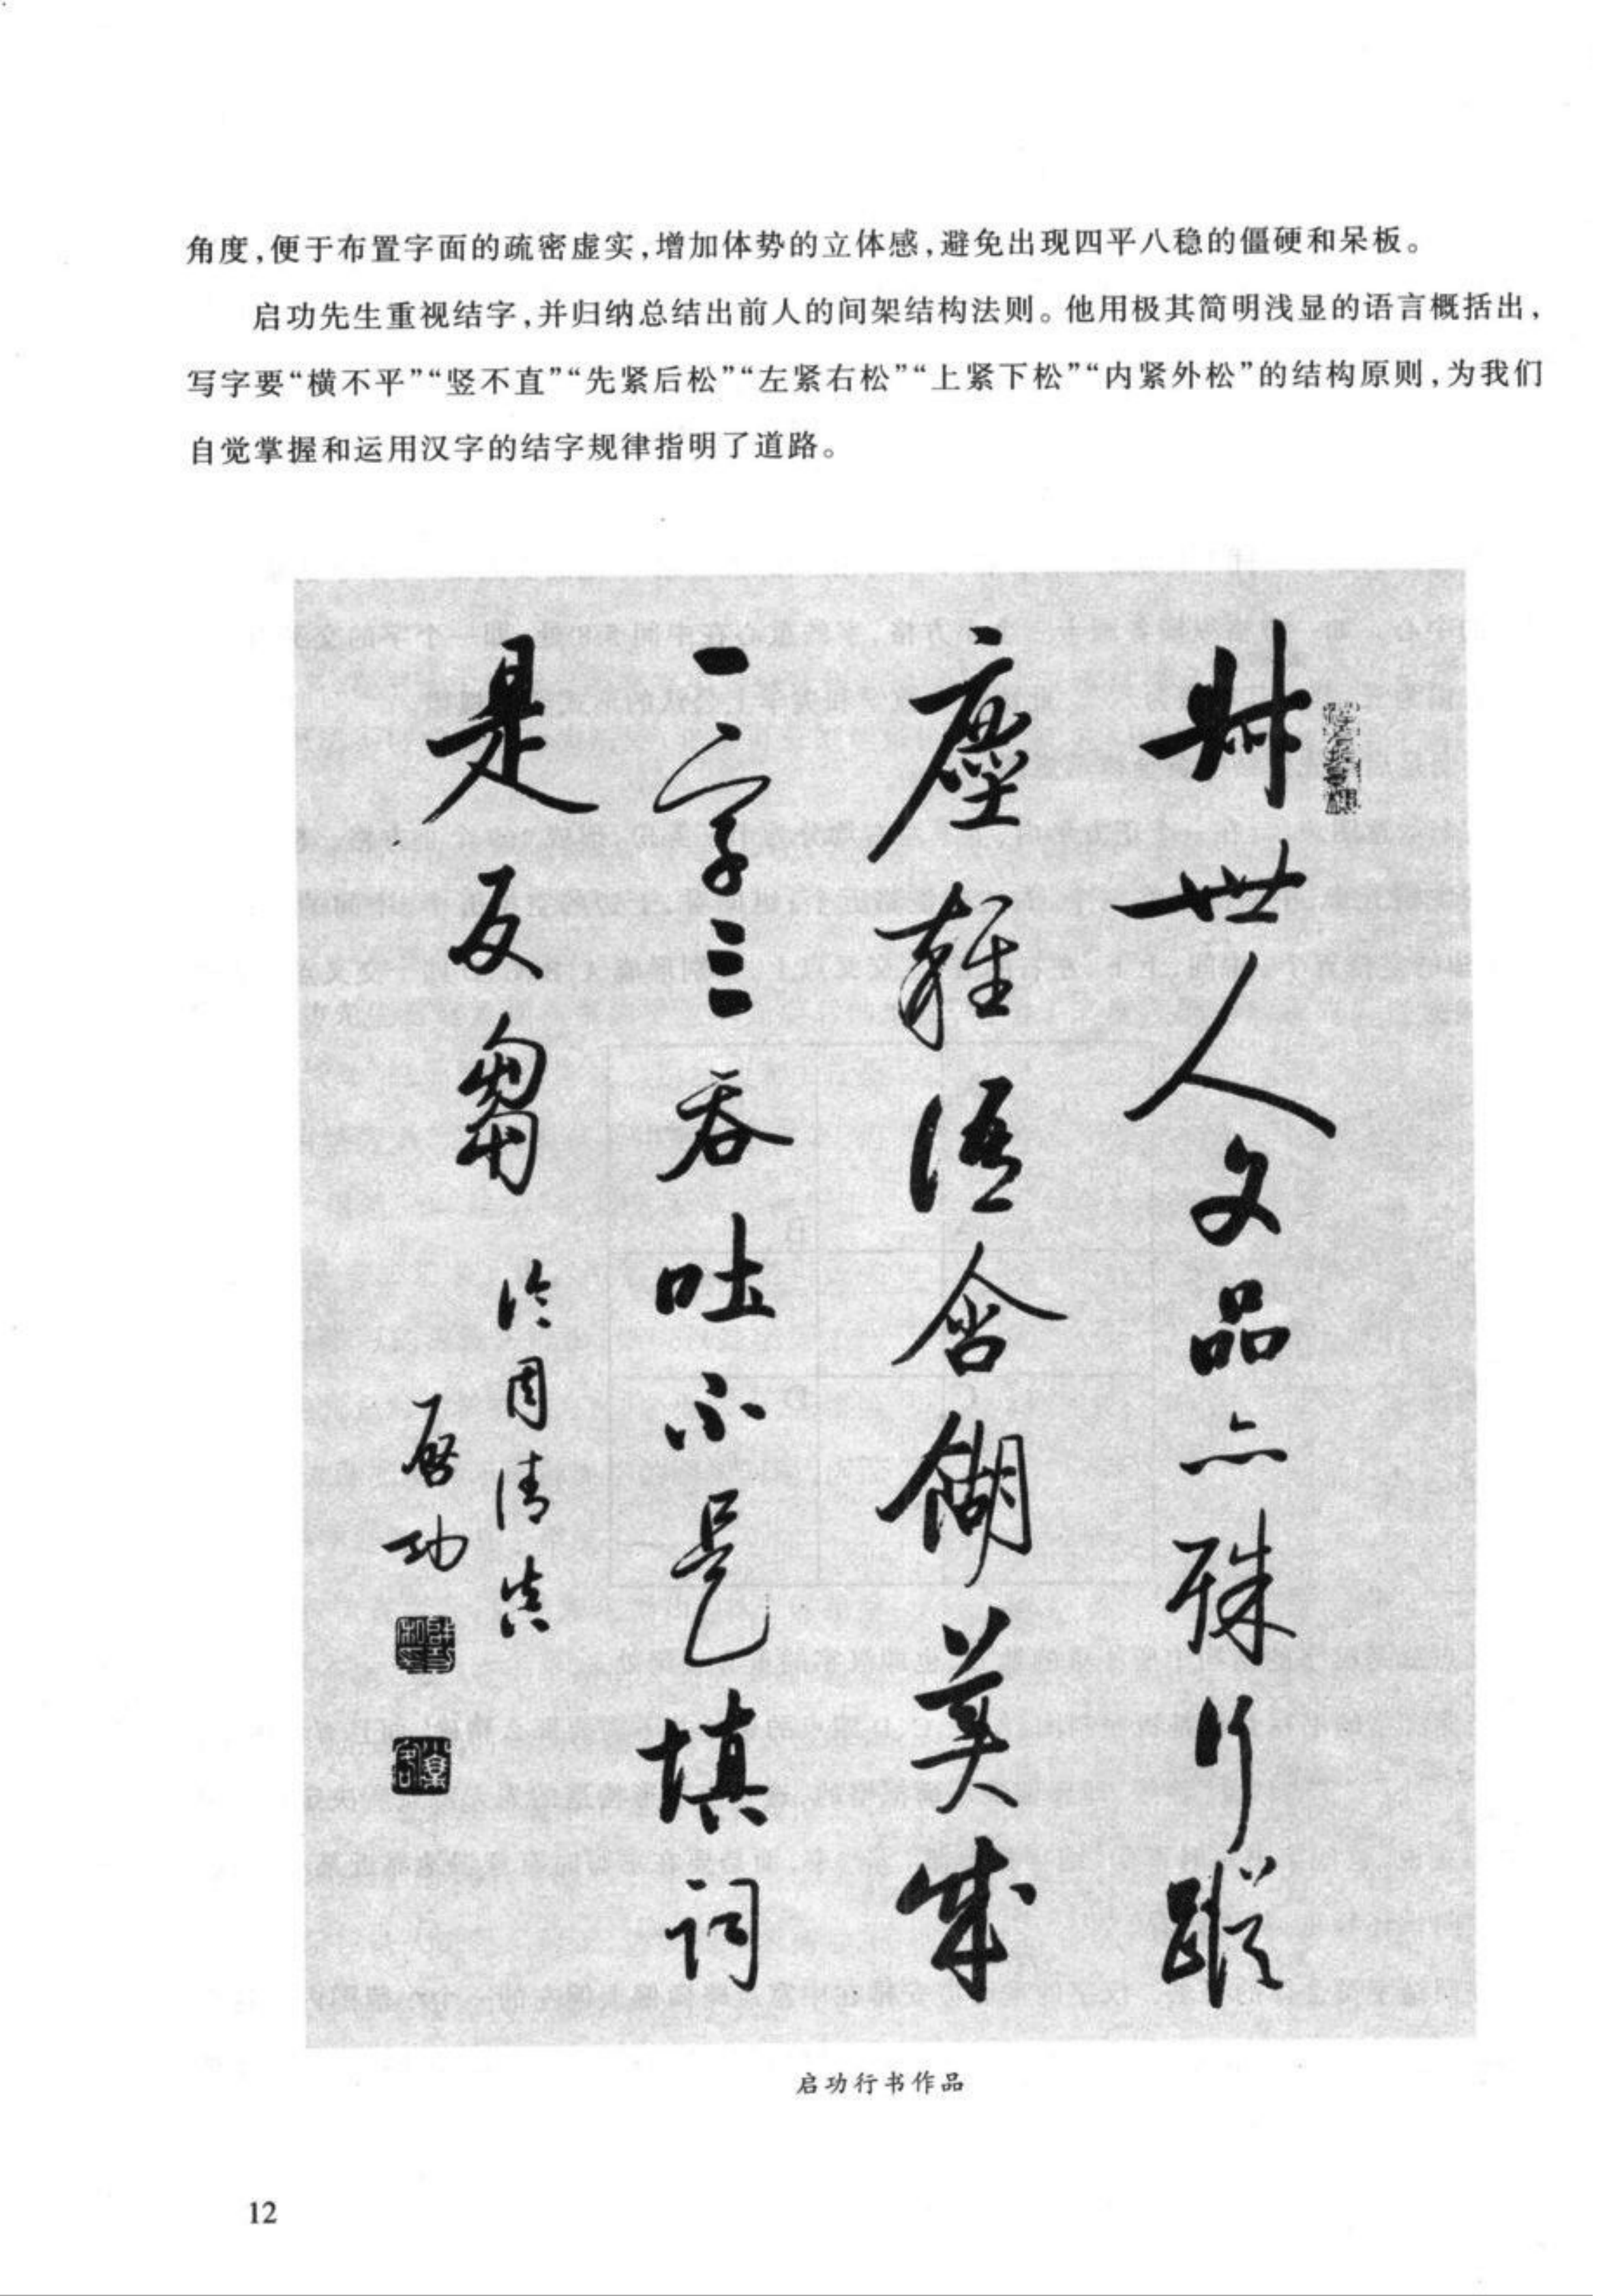 角度,便于布置字面的疏密虚实,增加体势的立体感,避免出现四平八稳的僵硬和呆板。
启功先生重视结字,并归纳总结出前人的间架结构法则。他用极其简明浅显的语言概括出,
写字要“横不平”“竖不直”“先紧后松”“左紧右松”“上紧下松”“内紧外松”的结构原则,为我们
自觉掌握和运用汉字的结字规律指明了道路。
叔世人文品亦殊行蹤
塵雜語含餬美成
一字三吞吐不是填詞
是反芻
論周清真
啓功
启功行书作品
12